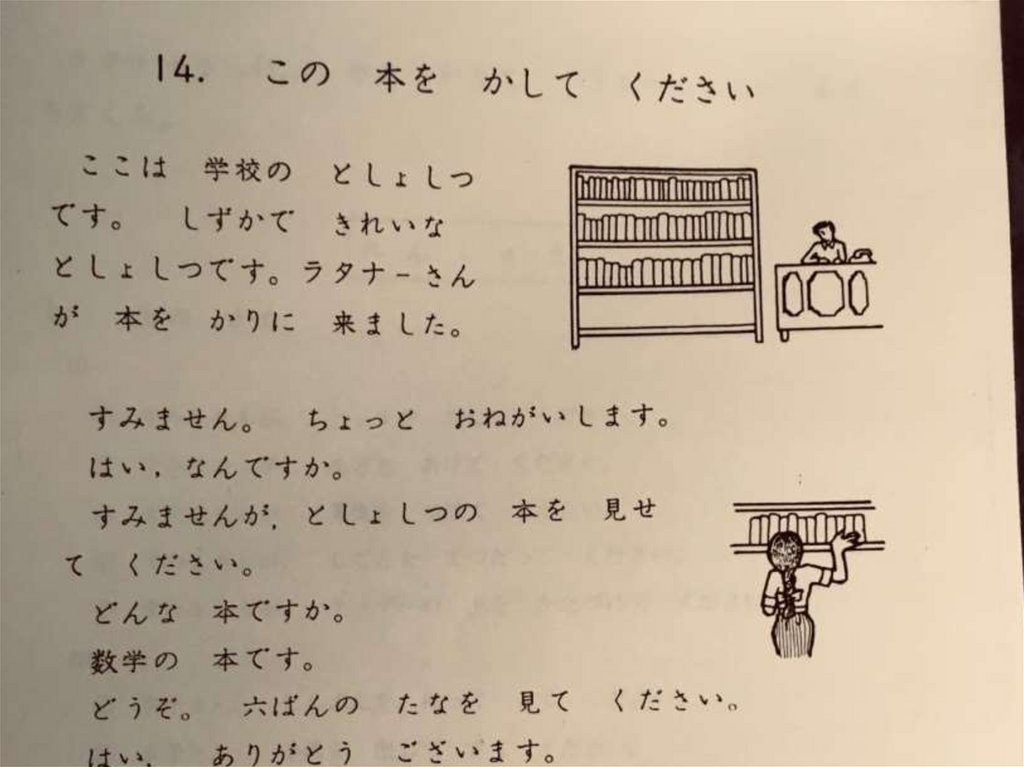 14. この 本を かして ください
ここは 学校の としょしつ
です。 しずかで きれいな
としょしつです。ラタナーさん
が 本を かりに 来ました。
すみません。 ちょっと おねがいします。
はい，なんですか。
すみませんが，としょしつの 本を 見せ
て ください。
どんな 本ですか。
数学の 本です。
どうぞ。 六ばんの たなを 見て ください。
はい， ありがとう ございます。